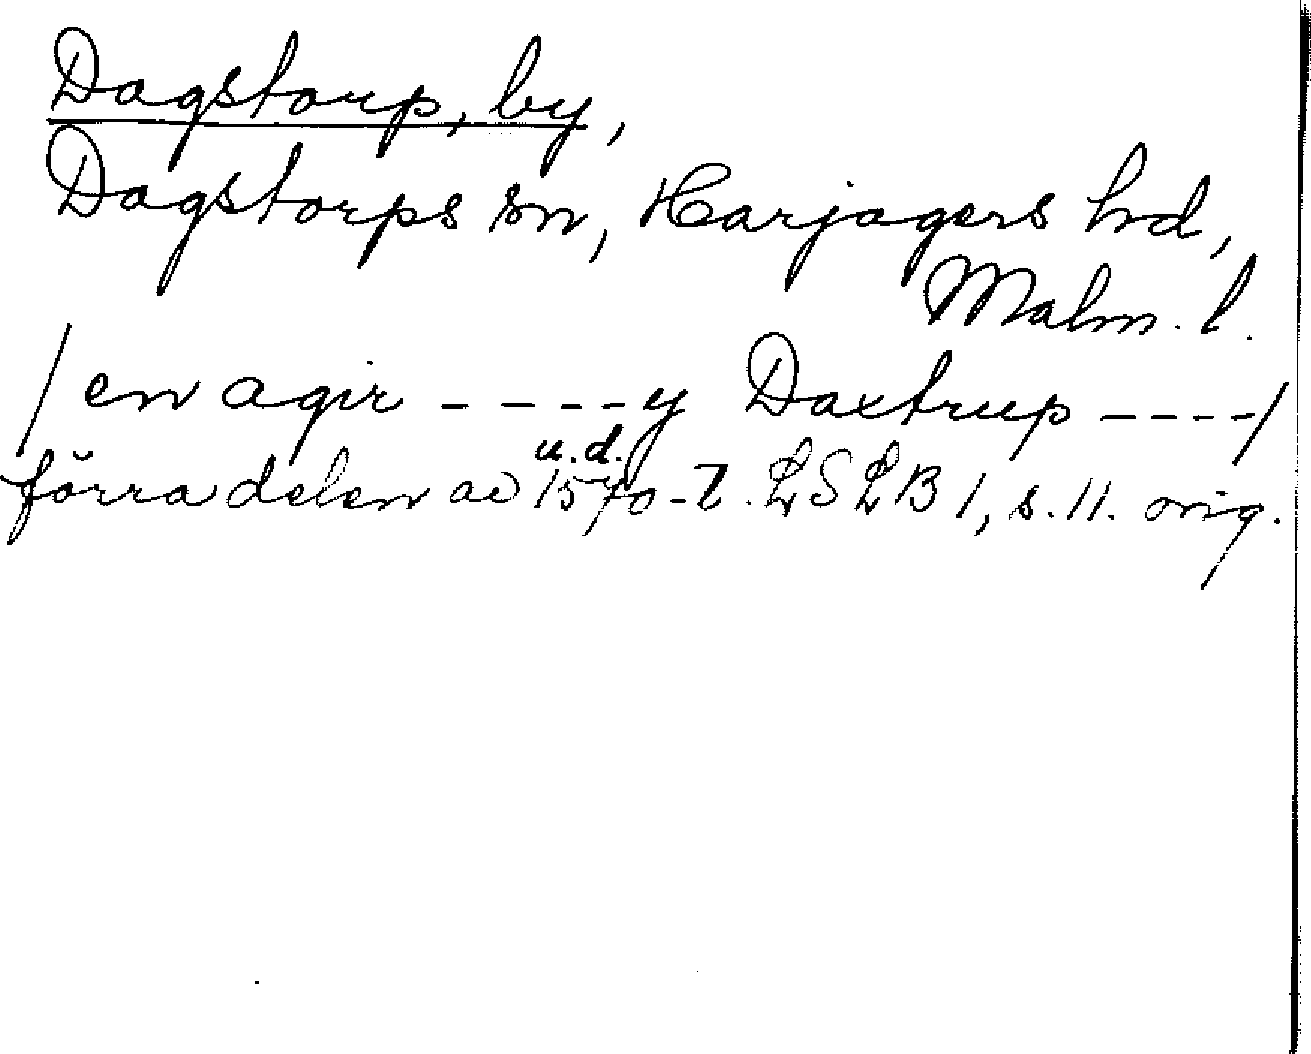 Dagstorp, by,
Dagstorps sn, Harjagers hd,
Malm. l.
/ en agir - - - - y Daxtrup - - - - /
u.d.
förra delen av 1570-t. LSLB 1, s. 11. orig.